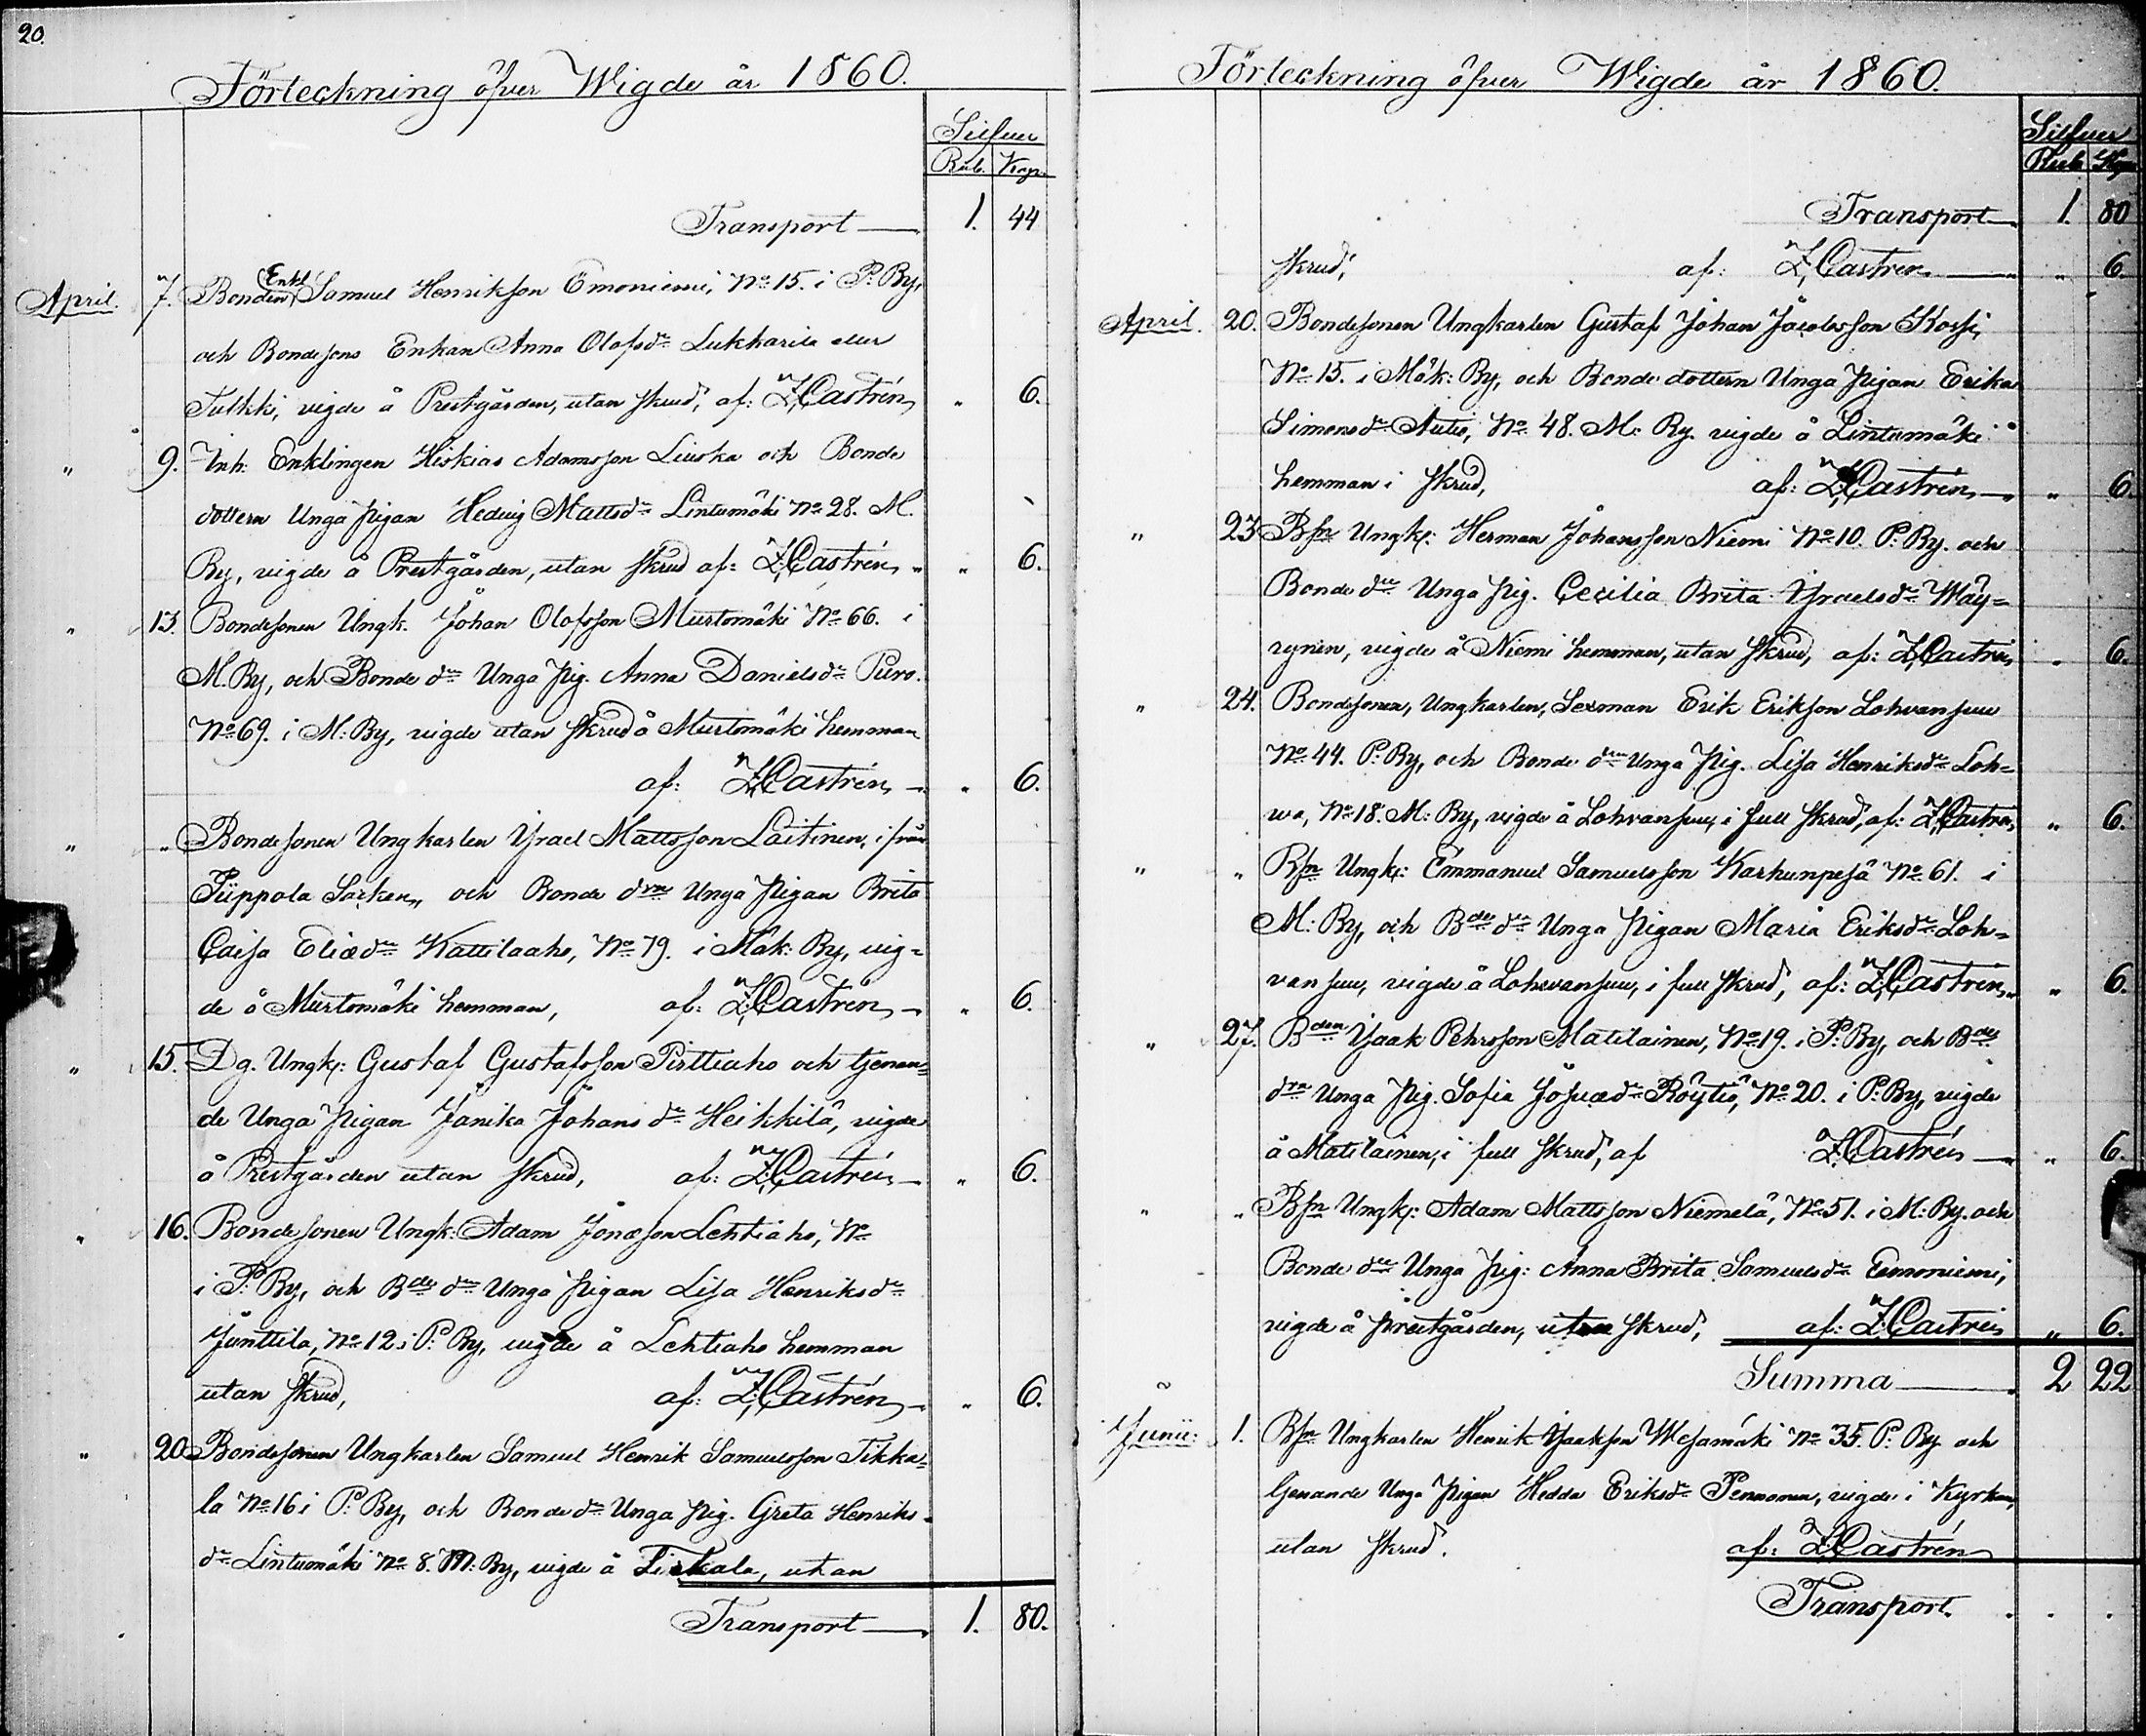 20.
Förteckning öfver Wigde år 1860.
Silfver
Rub. Kop.
Transport — 1. 44
April. 7. Bonden, Enkl. Samuel Henrikson Emoniemi, No 15. i P: By,
och Bondesons Enkan Anna Olofsdr Lukkarila eller
Tulkki, vigde å Prestgården, utan skrud, af: Z. Castrén „ 6.
„ 9. Inh: Enklingen Hiskias Adamsson Liuska och Bonde
dottern Unga Pigan Hedvig Mattsdr Lintumäki No 28. M.
By, vigde å Prestgården, utan skrud af: Z. Castrén „ „ 6.
„ 13. Bondesonen Ungk. Johan Olofsson Murtomäki No 66. i
M. By, och Bonde drn Unga Pig. Anna Danielsdr Puro.
No 69. i M: By, vigde utan skrud å Murtomäki hemman
af: Z. Castrén — „ 6.
„ „ Bondesonen Ungkarlen Israel Mattsson Laitinen, ifrån
Piippola Socken, och Bonde drn Unga Pigan Brita
Caisa Eliædr Kattilaaho, No 79. i Mäk: By, vig=
de å Murtomäki hemman, af: Z. Castrén — „ 6.
„ 15. Dg. Ungk: Gustaf Gustafsson Pirttiaho och tjenan=
de Unga Pigan Janika Johans dr Heikkilä, vigde
å Prestgården utan skrud, af: Z. Castrén — „ 6.
„ 16. Bondesonen Ungk: Adam Jonæson Lehtiaho, No
i P: By, och Bde drn Unga Pigan Lisa Henriksdr
Junttila, No 12. i P: By, vigde å Lehtiaho hemman
utan skrud, af: Z. Castrén — „ 6.
„ 20. Bondesonen Ungkarlen Samuel Henrik Samuelsson Tikka=
la No 16 i P: By, och Bonde dr Unga Pig. Greta Henriks=
dr Lintumäki No 8. M: By, vigde å Tikkala, utan
Transport — 1. 80.
Förteckning öfver Wigde år 1860.
Silfver
Rub. Kop.
Transport — 1. 80
skrud, af: Z. Castrén — „ 6.
April. 20. Bondesonen Ungkarlen Gustaf Johan Jacobsson Koski,
No 15. i Mäk: By, och Bonde dottern Unga Pigan Erika
Simonsdr Autio, No 48. M: By. vigde å Lintumäki
hemman i skrud, af: Z. Castrén — „ 6.
„ 23. Bsn Ungk: Herman Johansson Niemi No 10. P: By. och
Bonde drn Unga Pig. Cecilia Brita Israelsdr Wäy=
rynen, vigde å Niemi hemman, utan skrud, af: Z. Castrén „ 6.
„ 24. Bondesonen, Ungkarlen, Sexman Erik Erikson Lohvansuu
No 44. P: By, och Bonde drn Unga Pig. Lisa Henriksdr Loh=
wa, No 18. M: By, vigde å Lohvansuu, i full skrud, af: Z. Castrén „ 6.
„ „ Bsn Ungk: Emmanuel Samuelsson Karhunpesä No 61. i
M: By, och Bde drn Unga Pigan Maria Eriksdr Loh=
vansuu, vigde å Lohvansuu, i full skrud, af: Z. Castrén „ „ 6.
„ 27. Bden Isaak Pehrsson Matilainen, No 19. i P: By, och Bde
drn Unga Pig. Sofia Josuædr Röytiö, No 20. i P: By, vigde
å Matilainen, i full skrud, af Z. Castrén — „ 6.
„ „ Bsn Ungk: Adam Mattsson Niemelä, No 51. i M: By. och
Bonde drn Unga Pig: Anna Brita Samuelsdr Emoniemi,
vigde å Prestgården, utan skrud, af: Z. Castrén „ 6.
Summa — 2 22
Junii: 1. Bsn Ungkarlen Henrik Isaakson Wesamäki No 35. P: By och
tjenande Unga Pigan Hedda Eriksdr Pennanen, vigde i Kyrkan,
utan skrud. af: Z. Castrén
Transport. . . .